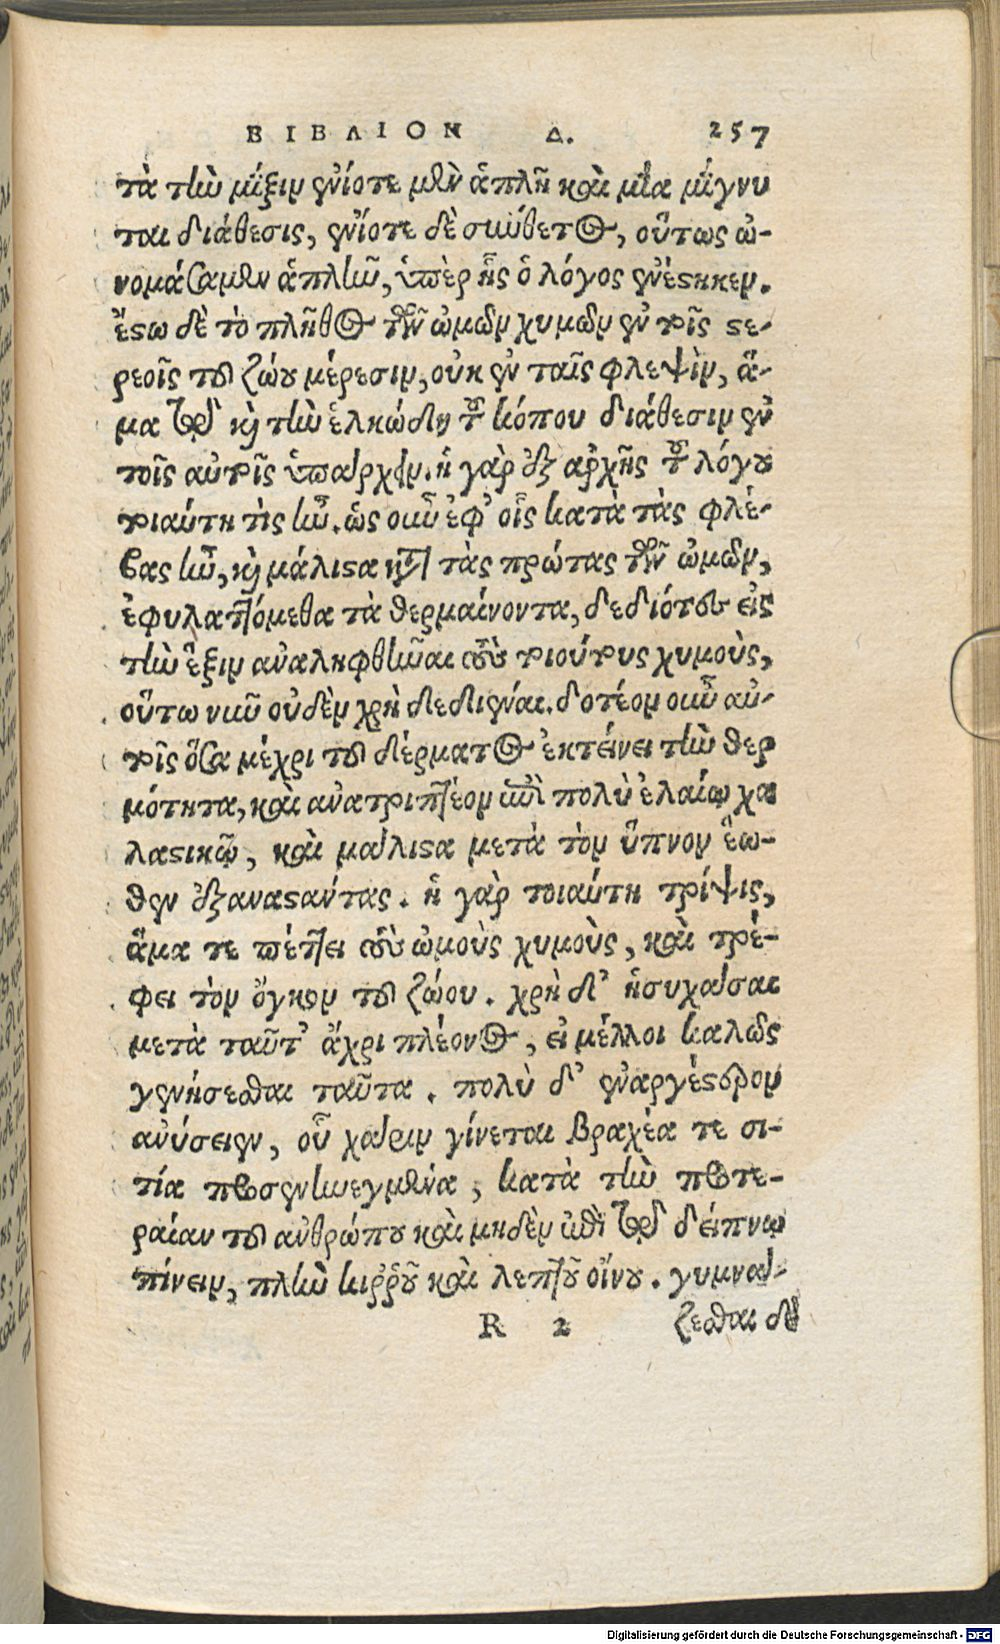 ΒΙΒΛΙΟΝ Δ. 257
τὰ τὴν μίξιν ἐνίοτε μὲν ἁπλῆ καὶ μία μίγνυ
ται διάθεσις, ἐνίοτε δὲ σύνθετος, οὕτως ὠ-
νομάσαμεν ἁπλῆν, ὑπὲρ ἧς ὁ λόγος ἐνέστηκεν.
ἔστω δὲ τὸ πλῆθος τῶν ὠμῶν χυμῶν ἐν τοῖς στε-
ρεοῖς τοῦ ζώου μέρεσιν, οὐκ ἐν ταῖς φλεψὶν, ἅ-
μα τῷ καὶ τὴν ἑλκώδη τοῦ κόπου διάθεσιν ἐν
τοῖς αὐτοῖς ὑπάρχειν. ἡ γὰρ ἐξ ἀρχῆς τοῦ λόγου
τοιαύτη τὶς ἦν. ὡς οὖν ἐφ’ οἷς κατὰ τὰς φλέ-
βας ἦν, καὶ μάλιστα κατὰ τὰς πρώτας τῶν ὠμῶν,
ἐφυλαττόμεθα τὰ θερμαίνοντα, δεδιότες εἰς
τὴν ἕξιν ἀναληφθῆναι τοὺς τοιούτους χυμοὺς,
οὕτω νῦν οὐδὲν χρὴ δεδιέναι. δοτέον οὖν αὐ-
τοῖς ὅσα μέχρι τοῦ δέρματος ἐκτείνει τὴν θερ
μότητα, καὶ ἀνατριπτέον ἐπὶ πολὺ ἐλαίῳ χα
λαστικῷ, καὶ μάλιστα μετὰ τὸν ὕπνον ἕω-
θεν ἐξαναστάντας. ἡ γὰρ τοιαύτη τρίψις,
ἅμα τε πέττει τοὺς ὠμοὺς χυμοὺς, καὶ τρέ-
φει τὸν ὄγκον τοῦ ζώου. χρὴ δ’ ἡσυχάσαι
μετὰ ταῦτ’ ἄχρι πλέονος, εἰ μέλλοι καλῶς
γενήσεσθαι ταῦτα. πολὺ δ’ ἐναργέστερον
ἀνύσειεν, οὗ χάριν γίνεται βραχέα τε σι-
τία προσενηνεγμένα, κατὰ τὴν προτε-
ραίαν τοῦ ἀνθρώπου καὶ μηδὲν ἐπὶ τῷ δείπνῳ
πίνειν, πλὴν κιῤῥοῦ καὶ λεπτοῦ οἴνου. γυμνά-
R 2 ζεσθαι δὲ
Digitalisierung gefördert durch die Deutsche Forschungsgemeinschaft - DFG